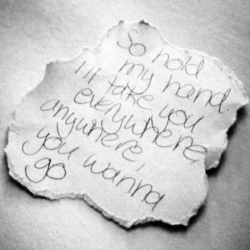 So hold
my hand
I'll take you
everywhere
anywhere,
you wanna
go